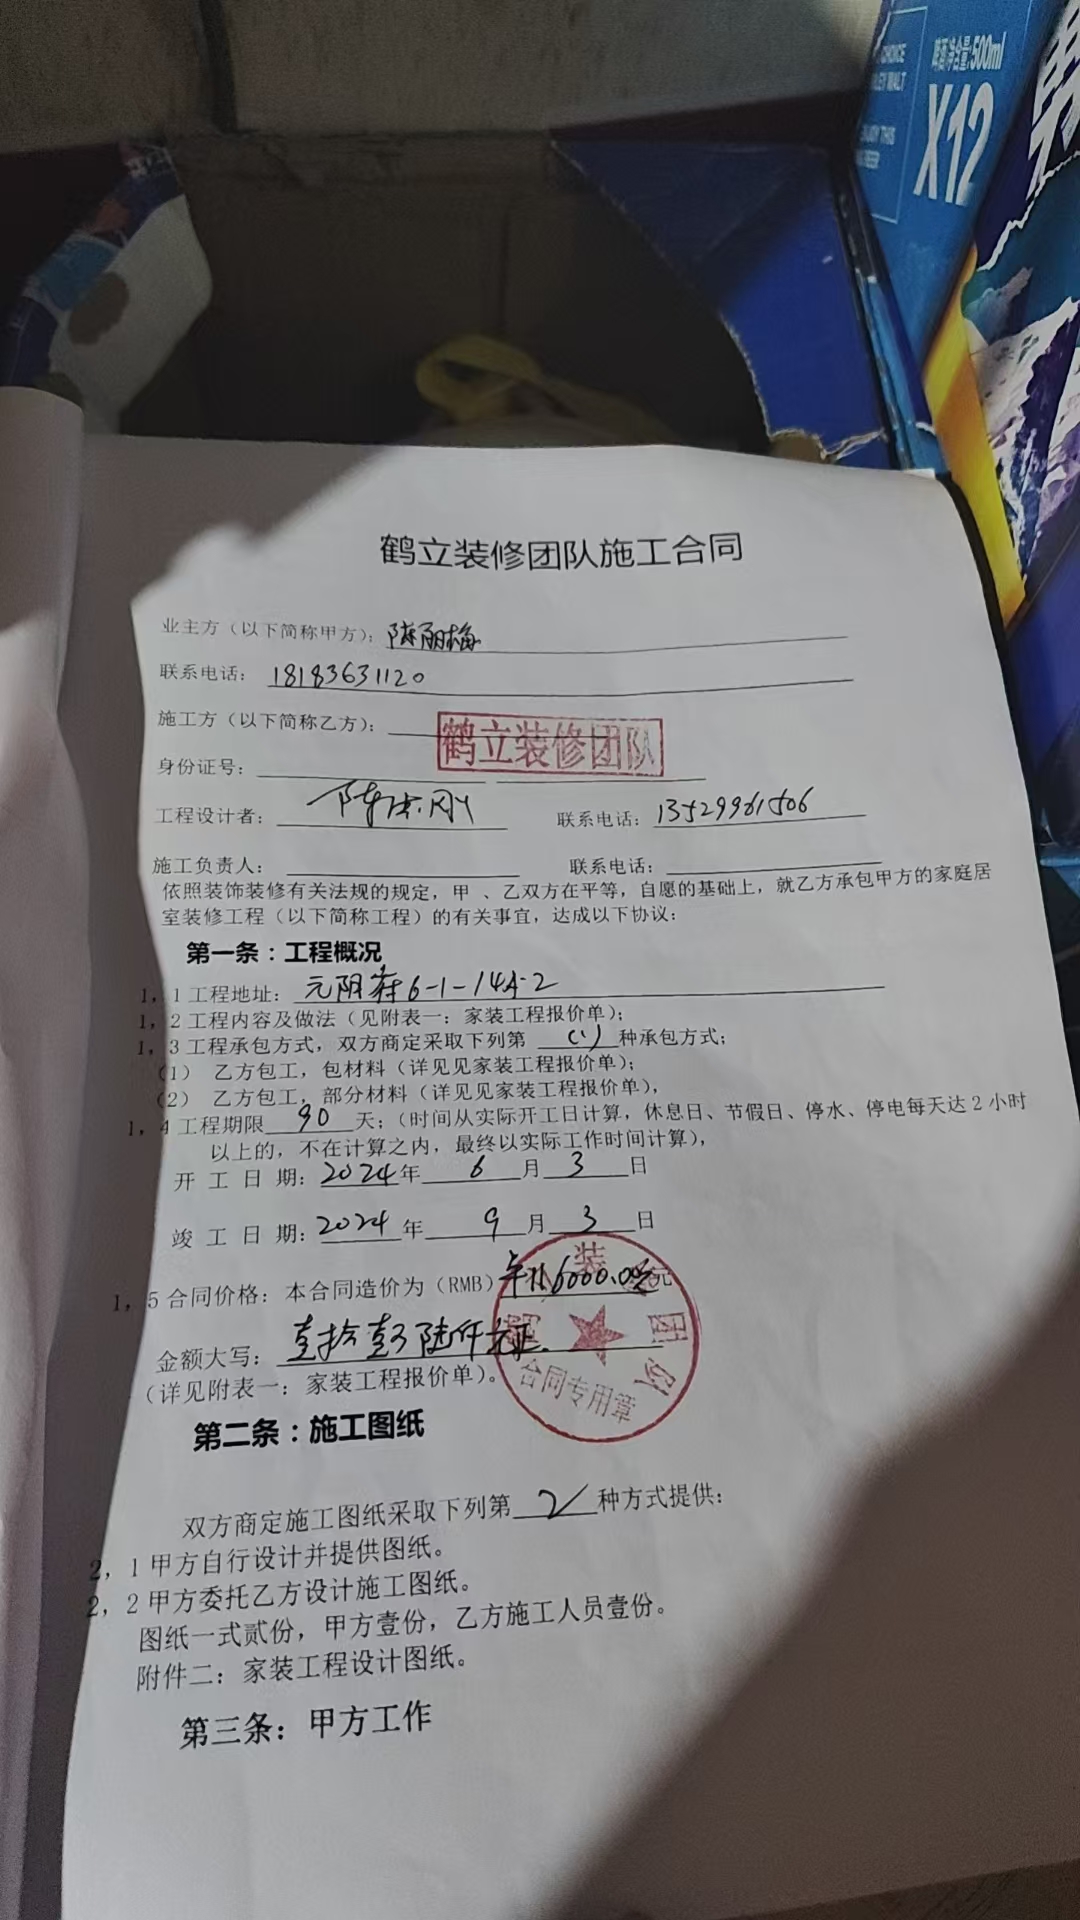 啤酒净含量:500ml
X12
鹤立装修团队施工合同
业主方（以下简称甲方）：陈丽梅
联系电话：18183631120
施工方（以下简称乙方）：鹤立装修团队
身份证号：
工程设计者：陈 刚 联系电话：13529961506
施工负责人： 联系电话：
依照装饰装修有关法规的规定，甲 、乙双方在平等，自愿的基础上，就乙方承包甲方的家庭居
室装修工程（以下简称工程）的有关事宜，达成以下协议：
第一条：工程概况
1，1 工程地址：元阳 6-1-14A-2
1，2 工程内容及做法（见附表一：家装工程报价单）；
1，3 工程承包方式，双方商定采取下列第 (1) 种承包方式；
（1） 乙方包工，包材料（详见见家装工程报价单）；
（2） 乙方包工，部分材料（详见见家装工程报价单），
1，4 工程期限 90 天；（时间从实际开工日计算，休息日、节假日、停水、停电每天达 2 小时
以上的，不在计算之内，最终以实际工作时间计算），
开 工 日 期：2024年 6 月 3 日
竣 工 日 期：2024 年 9 月 3 日
1，5 合同价格：本合同造价为（RMB） 6000.00 元
金额大写：壹拾 陆仟元正.
（详见附表一：家装工程报价单）。
装 团队
合同专用章
第二条：施工图纸
双方商定施工图纸采取下列第 2 种方式提供：
2，1 甲方自行设计并提供图纸。
2，2 甲方委托乙方设计施工图纸。
图纸一式贰份，甲方壹份，乙方施工人员壹份。
附件二：家装工程设计图纸。
第三条：甲方工作